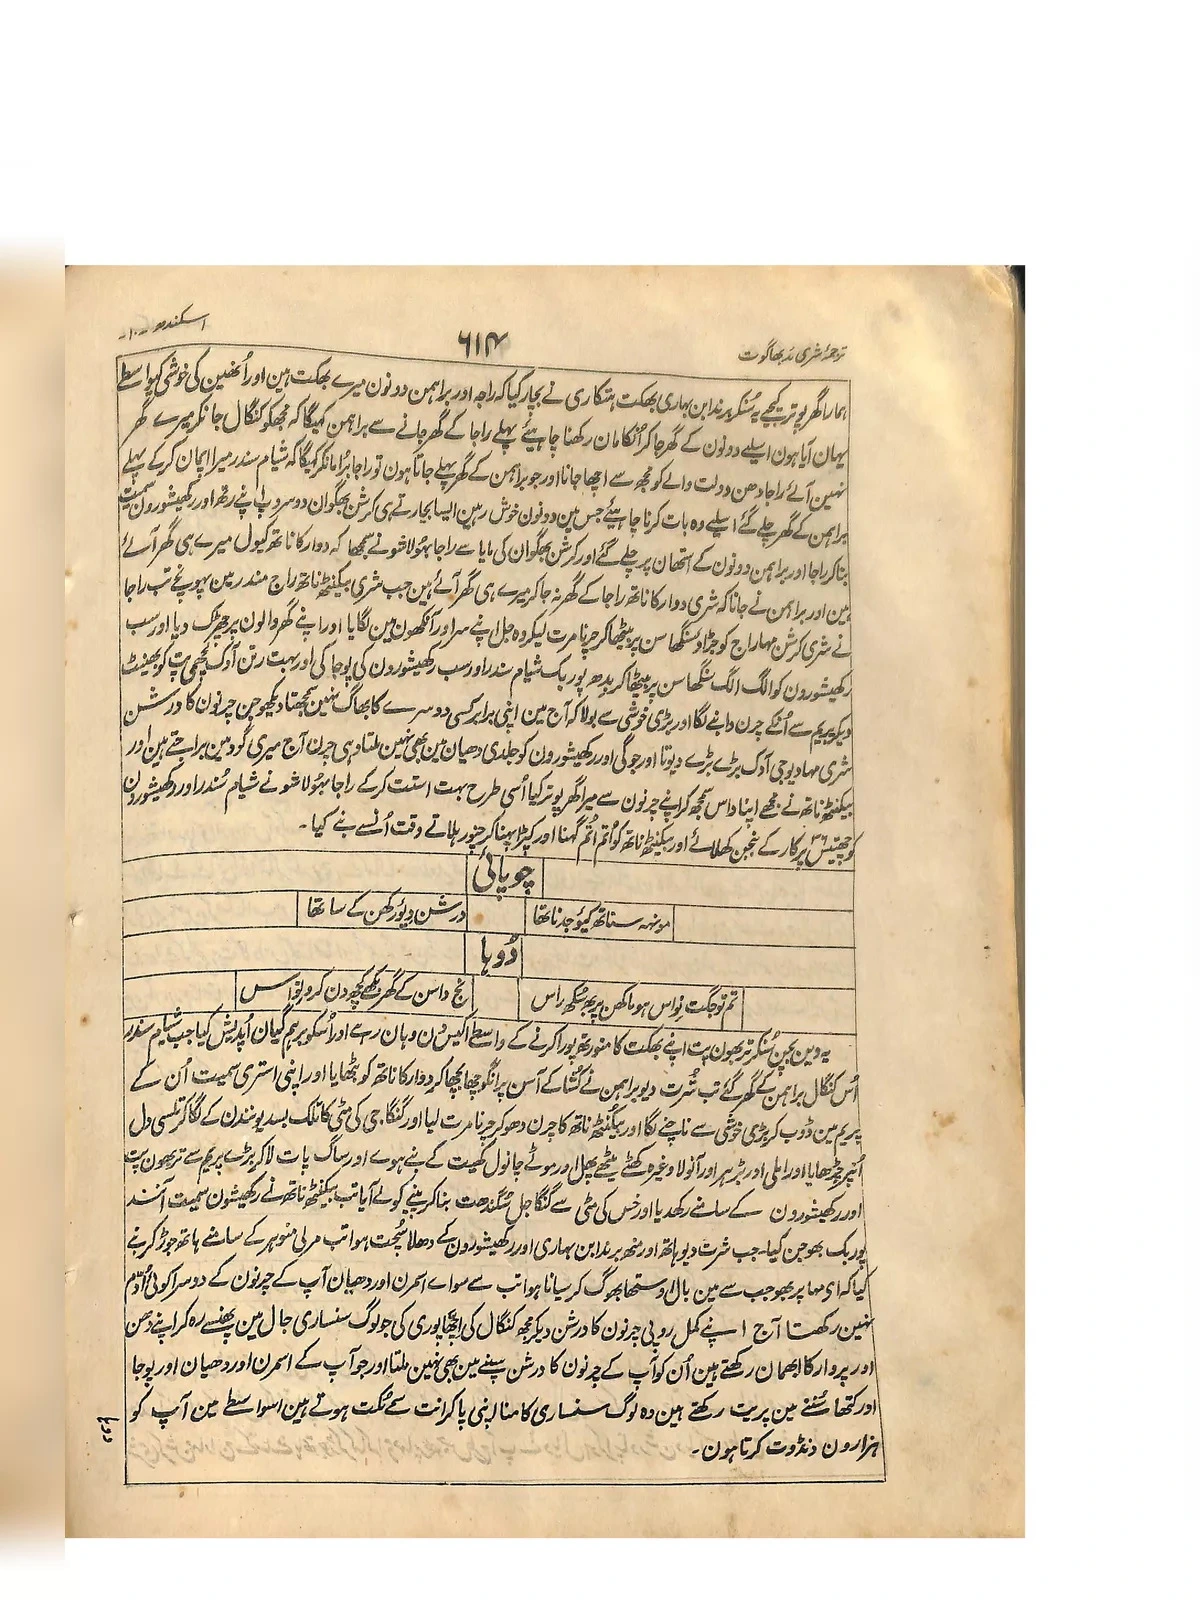 ترجمۂ شری مدبھاگوت
۶۱۴
اسکندھ ۔۱۰۔
ہمارا گھر پوتر کیجے یہ سُنکر بندرابن بہاری بھکت ہتکاری نے بچار کیا کہ راجہ اور براہمن دونون میرے بھکت ہین اور اُنھین کی خوشی کیواسطے
یہان آیا ہون اسلیے دونون کے گھر جاکر اُنکا مان رکھنا چاہیئے پہلے راجا کے گھر جانے سے براہمن کہیگا کہ مجھکو کنگال جانکر میرے گھر
نہین آئے راجا دھن دولت والے کو مجھ سے اچھا جانا اور جو براہمن کے گھر پہلے جاتا ہون تو راجا بُرا مانکر کہیگا کہ شیام سندر میرا اپمان کرکے پہلے
براہمن کے گھر چلے گئے اسلیے وہ بات کرنا چاہیئے جس مین دونون خوش رہین ایسا بچارتے ہی کرشن بھگوان دو سروپ اپنے رتھ اور رکھیشورون سمیت
بناکر راجا اور براہمن دونون کے استھان پر چلے گئے اور کرشن بھگوان کی مایا سے راجا بہُولاشو نے سمجھا کہ دوارکاناتھ کیول میرے ہی گھر آئے
ہین اور براہمن نے جانا کہ شری دوارکاناتھ راجا کے گھر نہ جاکر میرے ہی گھر آئے ہین جب شری بیکنٹھ ناتھ راج مندر مین پہونچے تب راجا
نے شری کرشن مہاراج کو جڑاؤ سنگھاسن پر بیٹھاکر چرنامرت لیکر وہ جل اپنے سر اور آنکھون مین لگایا اور اپنے گھر والون پر چھڑک دیا اور سب
رکھیشورون کو الگ الگ سنگھاسن پر بیٹھاکر بدھ پوربک شیام سندر اور سب رکھیشورون کی پوجا کی اور بہت رتن آدک لچھمی پت کو بھینٹ
دیکر پریم سے اُنکے چرن دابنے لگا اور بڑی خوشی سے بولا کہ آج مین اپنی برابر کسی دوسرے کا بھاگ نہین سمجھتا دیکھو جن چرنون کا درشن
شری مہادیوجی آدک بڑے بڑے دیوتا اور جوگی اور رکھیشورون کو جلدی دھیان مین بھی نہین ملتا وہی چرن آج میری گود مین براجتے ہین اور
بیکنٹھ ناتھ نے مجھے اپنا داس سمجھ کر اپنے چرنون سے میرا گھر پوتر کیا اُسی طرح بہت استت کرکے راجا بہُولاشو نے شیام سُندر اور رکھیشورون
کو چھتیس ۳۶ پرکار کے بنجن کھلائے اور بیکنٹھ ناتھ کو اُتم اُتم گہنا اور کپڑا پہناکر چنور ہلاتے وقت اُنسے بنے کیا ۔
چوپائی
مونہہ سناتھ کیؤ جدناتھا
درشن دیؤ رکھن کے ساتھا
دُوہا
تم تو جگت نواس ہو ماکھن پربھ سُکھ راس
نج داسن کے گھر بکھے کچھ دن کرو نواس
یہ دین بچن سُنکر تربھون پت اپنے بھکت کا منورتھ پورا کرنے کے واسطے اکیس دن وہان رہے اور اُسکو برہم گیان اُپدیش کیا جب شیام سندر
اُس کنگال براہمن کے گھر گئے تب سُرت دیو براہمن نے کُشا کے آسن پر انگوچھا بچھاکر دوارکاناتھ کو بٹھایا اور اپنی استری سمیت اُن کے
پریم مین ڈوب کر بڑی خوشی سے ناچنے لگا اور بیکنٹھ ناتھ کا چرن دھوکر چرنامرت لیا اور گنگا جی کی مٹی کا تلک بسدیونندن کے لگاکر تلسی دل
اُنپر چڑھایا اور املی اور بڑہر اور آنولا وغیرہ کھٹے میٹھے پھل اور موٹے چانول کھیت کے بنے ہوے اور ساگ پات لاکر بڑے پریم سے تربھون پت
اور رکھیشورون کے سامنے رکھدیا اور خس کی مٹی سے گنگا جل سُگندھت بناکر پینے کو لے آیا تب بیکنٹھ ناتھ نے رکھیشون سمیت آنند
پوربک بھوجن کیا۔ جب شرت دیو ہاتھ اور منھ بندرابن بہاری اور رکھیشورون کے دھلا سُچت ہوا تب مرلی منوہر کے سامنے ہاتھ جوڑ کر بنے
کیا کہ ای مہا پربھو جب سے مین بال اوستھا بھوگ کر سیانا ہوا تب سے سواے اسمرن اور دھیان آپ کے چرنون کے دوسرا کوئی اُدم
نہین رکھتا آج اپنے کمل روپی چرنون کا درشن دیکر مجھ کنگال کی اِچھا پوری کی جو لوگ سنساری جال مین پھنسے رہ کر اپنے دھن
اور پروار کا ابھمان رکھتے ہین اُن کو آپ کے چرنون کا درشن سپنے مین بھی نہین ملتا اور جو آپ کے اسمرن اور دھیان اور پوجا
اور کتھا سُننے مین پریت رکھتے ہین وہ لوگ سنساری کامنا اپنی پاکر انت سمے مُکت ہوتے ہین اسواسطے مین آپ کو
ہزارون دنڈوت کرتا ہون ۔
دوہا